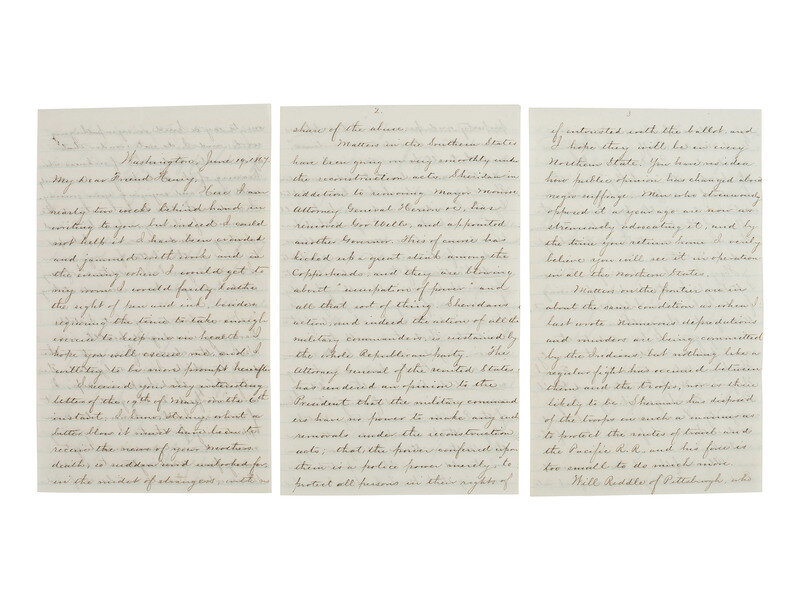 Washington, June 19, 1867.
My Dear Friend Henry,
Here I am
nearly two weeks behind hand in
writing to you, but indeed I could
not help it. I have been crowded
and jammed with work and in
the evening when I would get to
my room I would fairly loathe
the sight of pen and ink, besides
requiring the time to take enough
exercise to keep me in health. I
hope you will excuse me, and I
will try to be more prompt hereafter
I received your very interesting
letter of the 19th of May on the 6th
instant. I know what a
bitter blow it must have been to
receive the news of your Mother's
death, so sudden and unlooked for,
in the midst of strangers, with no
2.
share of the abuse.
Matters in the Southern States
have been going on very smoothly under
the reconstruction acts. Sheridan in
addition to removing Mayor Monroe
Attorney General Herron &c, has
removed Gov Wells, and appointed
another Governor. This of course has
kicked up a great stink among the
Copperheads and they are blowing
about "usurpation of power" and
all that sort of thing. Sheridan's
action, and indeed the action of all the
military commanders, is sustained by
the whole Republican party. The
Attorney General of the United States
has rendered an opinion to the
President that the military command
ers have no power to make any such
removals under the reconstruction
acts; that the power conferred upon
them is a police power merely, to
protect all persons in their rights of
3
if intrusted with the ballot, and
I hope they will be in every
Northern State. You have no idea
how public opinion has changed about
negro suffrage. Men who strenuously
opposed it a year ago are now as
strenuously advocating it, and by
the time you return home I verily
believe you will see it in operation
in all the Northern States.
Matters on the frontier are in
about the same condition as when I
last wrote. Numerous depredations
and murders are being committed
by the Indians, but nothing like a
regular fight has occurred between
them and the troops, nor is there
likely to be. Sherman has disposed
of the troops in such a manner as
to protect the routes of travel and
the Pacific R.R. and his force is
too small to do much more.
Will Reddle of Pittsburgh, who